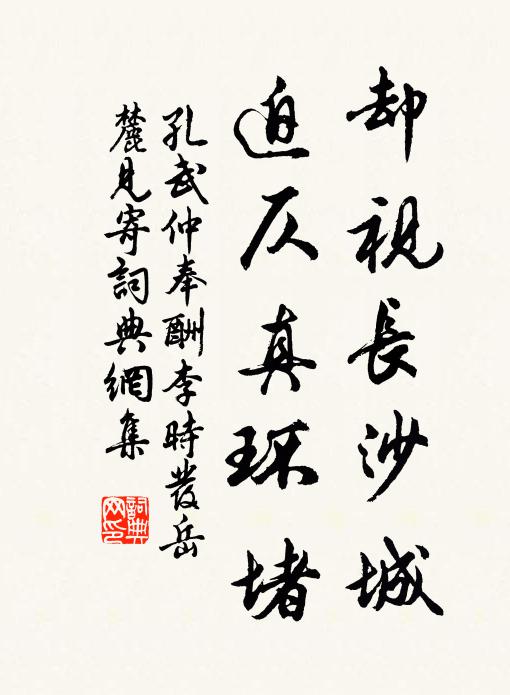 却視長沙城
迫仄真环堵
孔武仲奉酬李時發岳
麓見寄詞典網集
詞典
网印